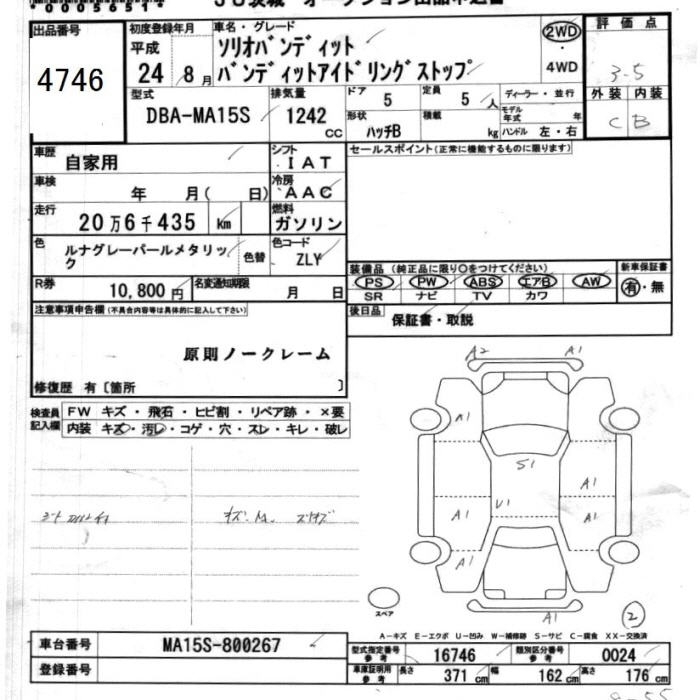 *00056511*
出品番号
4746
初度登録年月
平成
24 8月
車名・グレード
ソリオバンディット
バンディットアイドリングストップ
2WD
・
4WD
評価点
3-5
型式
DBA-MA15S
排気量
1242
cc
ドア
5
定員
5 人
ディーラー・並行
形状
ハッチB
積載
kg
モデル年式 年
ハンドル 左・右
外装 内装
C B
車歴
自家用
シフト
IAT
セールスポイント(正常に機能するものに限ります)
車検
年 月( 日)
冷房
AAC
走行
20万6千435 km
燃料
ガソリン
色
ルナグレーパールメタリック
色替
色コード
ZLY
装備品 (純正品に限り○をつけてください)
新車保証書
PS PW ABS エアB AW
SR ナビ TV カワ
有・無
R券
10,800円
名変通知期限
月 日
後日品
保証書・取説
注意事項申告欄(不具合内容等は具体的に記入して下さい)
原則ノークレーム
修復歴 有〔箇所 〕
検査員記入欄
FW キズ・飛石・ヒビ割・リペア跡・×要
内装 キズ・汚レ・コゲ・穴・スレ・キレ・破レ
A2 A1
A1
S1
A1
U1
A1 A1
A1
スペア
A1
2
A-キズ E-エクボ U-凹み W-補修跡 S-サビ C-腐食 XX-交換済
車台番号
MA15S-800267
登録番号
型式指定番号
参考
16746
類別区分番号
参考
0024
車庫証明用
参考
長さ 371 cm 幅 162 cm 高さ 176 cm